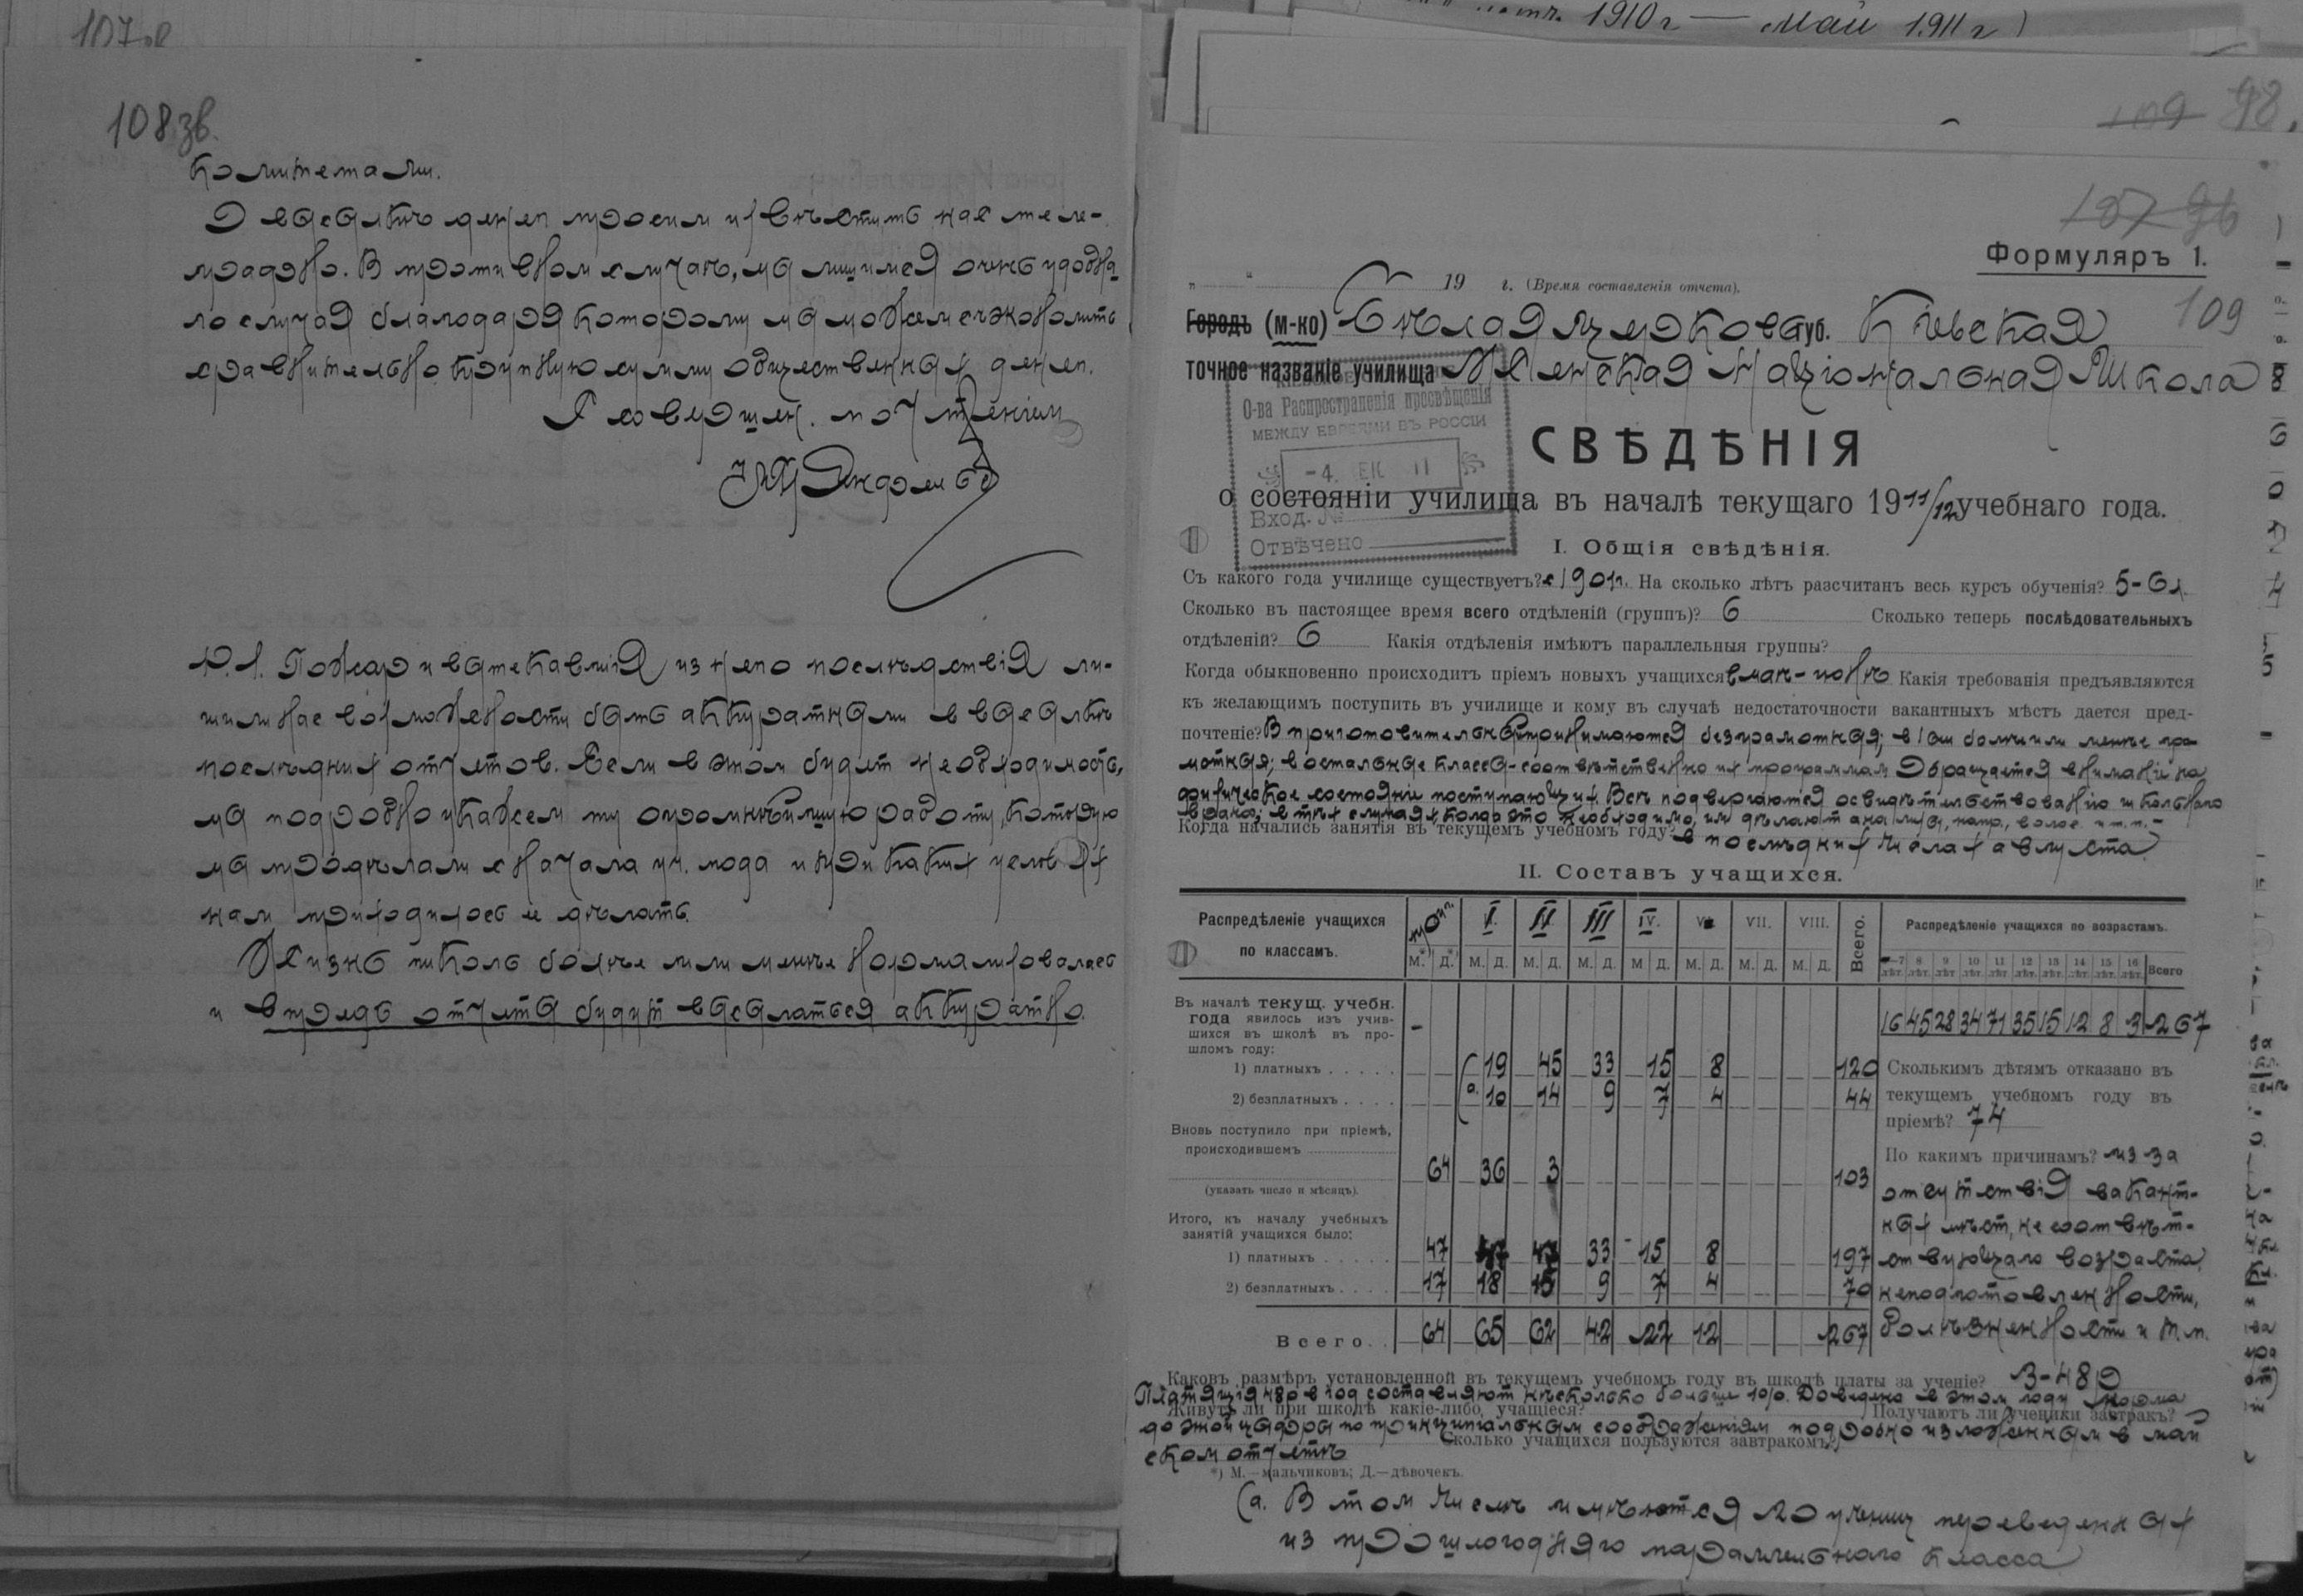 108 зв.
Комитетами.
О высылкѣ денег просим извѣстить нас теле-
графно. В противном случаѣ, мы лишимся очень удобна-
го случая благодаря которому мы можем съэкономить
сравнительно крупную сумму общественных денег.
С совершен. почтеніем
P.S. Пожар и вытекавшія из него послѣдствія ли-
шили нас возможности быть аккуратными в высылкѣ
послѣдних отчетов. Если в этом будет необходимость,
мы подробно укажем ту огромнѣйшую работу, которую
мы продѣлали с начала уч. года и при каких условіях
нам приходилось ее дѣлать.
Жизнь школы болѣе или менѣе нормализовалась
и впредь отчеты будут высылаться аккуратно.
1910 г — Май 1911 г)
109 98.
107 96
Формуляръ 1.
109
" " 19 г. (Время составленія отчета).
Городъ (м-ко) Бѣлая Церковь Губ. Кіевская
точное названіе училища Женская Національная Школа
О-ва Распространенія просвѣщенія
МЕЖДУ ЕВРЕЯМИ ВЪ РОССІИ
-4.
Вход. №
Отвѣчено
СВѢДѢНІЯ
о состояніи училища въ началѣ текущаго 1911/12 учебнаго года.
I. Общія свѣдѣнія.
Съ какого года училище существуетъ? с 1901 г. На сколько лѣтъ разсчитанъ весь курсъ обученія? 5-6 л.
Сколько въ настоящее время всего отдѣленій (группъ)? 6 Сколько теперь послѣдовательныхъ
отдѣленій? 6 Какія отдѣленія имѣютъ параллельныя группы?
Когда обыкновенно происходитъ пріемъ новыхъ учащихся в маѣ-іюнѣ Какія требованія предъявляются
къ желающимъ поступить въ училище и кому въ случаѣ недостаточности вакантныхъ мѣстъ дается пред-
почтеніе? В приготовительный принимаются безграмотныя; в I-ый болѣе или менѣе гра-
мотныя; в остальные классы-соотвѣтственно их программам. Обращается вниманіе на
физическое состояніе поступающих. Всѣ подвергаются освидѣтельствованію школьнаго
врача; в тѣх случаях, когда это необходимо, им дѣлают анализы, напр., волос и т. п.-
Когда начались занятія въ текущемъ учебномъ году? в послѣдних числах августа.
II. Составъ учащихся.
Распредѣленіе учащихся по классамъ. При. I. II III IV. V VII. VIII. Всего. Распредѣленіе учащихся по возрастамъ.
м.*) д.*) м. д. м. д. м. д. м д. м. д. м. д. м. д. —7 лѣт. 8 лѣт. 9 лѣт 10 лѣт. 11 лѣт. 12 лѣт. 13 лѣт. 14 лѣт. 15 лѣт. 16 лѣт. Всего
Въ началѣ текущ. учебн.
года явилось изъ учив-
шихся въ школѣ въ про-
шломъ году:
16 45 28 34 71 35 15 12 8 3 267
1) платныхъ 19 45 33 15 8 120
2) безплатныхъ (а. 10 14 9 7 4 44
Вновь поступило при пріемѣ,
происходившемъ 64 36 3 103
(указать число и мѣсяцъ).
Итого, къ началу учебныхъ
занятій учащихся было:
1) платныхъ 47 47 47 33 15 8 197
2) безплатныхъ 17 18 15 9 7 4 70
Всего. 64 65 62 42 22 12 267
Сколькимъ дѣтямъ отказано въ
текущемъ учебномъ году въ
пріемѣ? 74
По какимъ причинамъ? из за
отсутствія вакант-
ных мѣст, не соотвѣт-
ствующаго возраста,
неподготовленности,
болѣзненности и т. п.
Каковъ размѣръ установленной въ текущемъ учебномъ году въ школѣ платы за ученіе? 3-48 р
Платящія 48 р в год составляют нѣсколько больше 10%. Доведена в этом году норма
Живутъ ли при школѣ какіе-либо учащіеся? Получаютъ ли ученики завтракъ?
до этой цыфры по принципіальным соображеніям подробно изложенным в май
Сколько учащихся пользуются завтракомъ?
ском отчетѣ
*) М.—мальчиковъ; Д.—дѣвочекъ.
(а. В том числѣ имѣются 20 учениц переведенных
из прошлогодняго параллельнаго класса